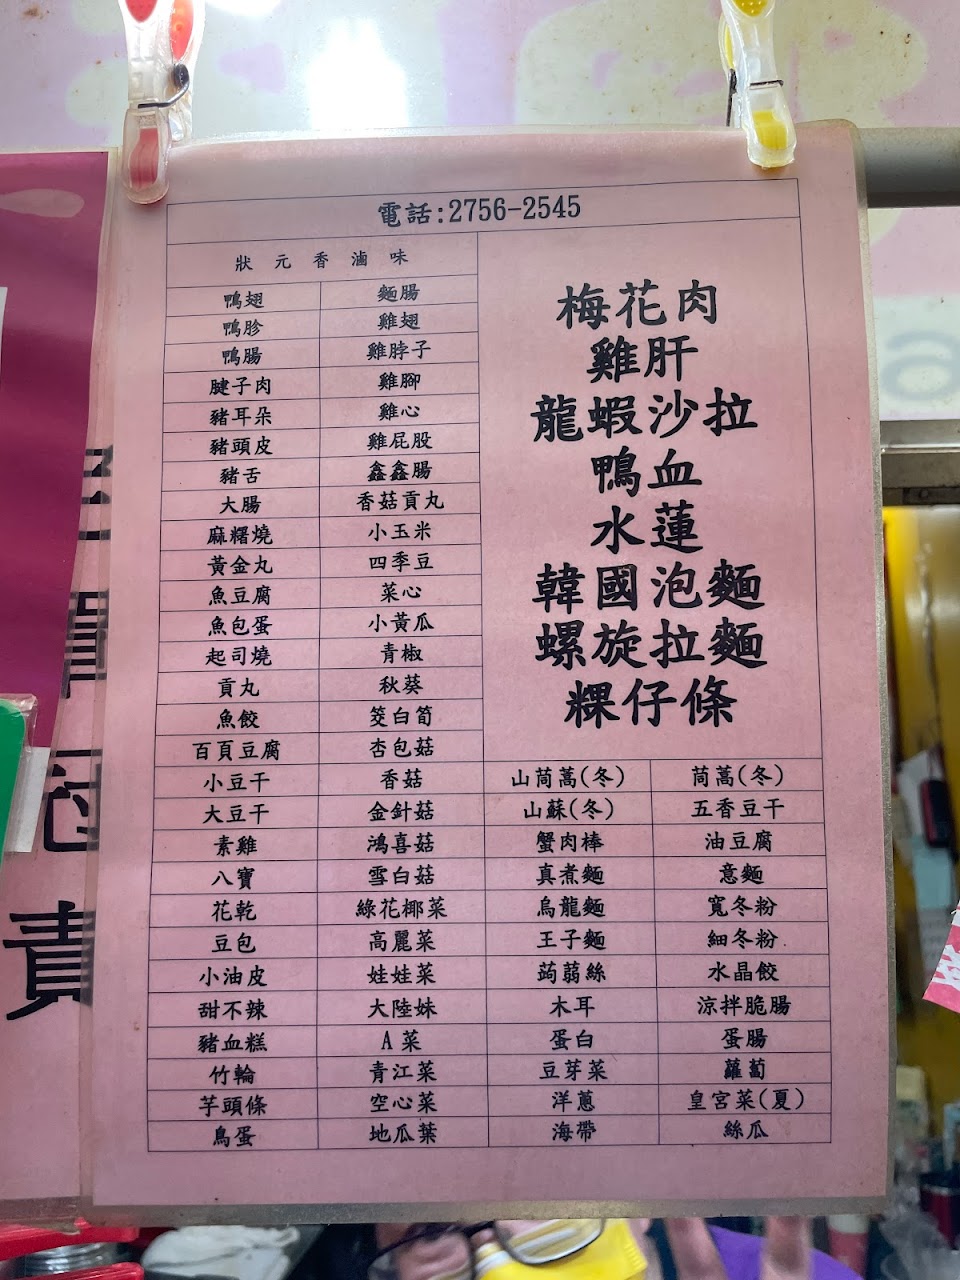 電話:2756-2545
狀元香滷味
鴨翅 麵腸
鴨胗 雞翅
鴨腸 雞脖子
腱子肉 雞腳
豬耳朵 雞心
豬頭皮 雞屁股
豬舌 鑫鑫腸
大腸 香菇貢丸
麻糬燒 小玉米
黃金丸 四季豆
魚豆腐 菜心
魚包蛋 小黃瓜
起司燒 青椒
貢丸 秋葵
魚餃 筊白筍
百頁豆腐 杏包菇
梅花肉
雞肝
龍蝦沙拉
鴨血
水蓮
韓國泡麵
螺旋拉麵
粿仔條
小豆干 香菇 山茼蒿(冬) 茼蒿(冬)
大豆干 金針菇 山蘇(冬) 五香豆干
素雞 鴻喜菇 蟹肉棒 油豆腐
八寶 雪白菇 真煮麵 意麵
花乾 綠花椰菜 烏龍麵 寬冬粉
豆包 高麗菜 王子麵 細冬粉
小油皮 娃娃菜 蒟蒻絲 水晶餃
甜不辣 大陸妹 木耳 涼拌脆腸
豬血糕 A菜 蛋白 蛋腸
竹輪 青江菜 豆芽菜 蘿蔔
芋頭條 空心菜 洋蔥 皇宮菜(夏)
鳥蛋 地瓜葉 海帶 絲瓜
責